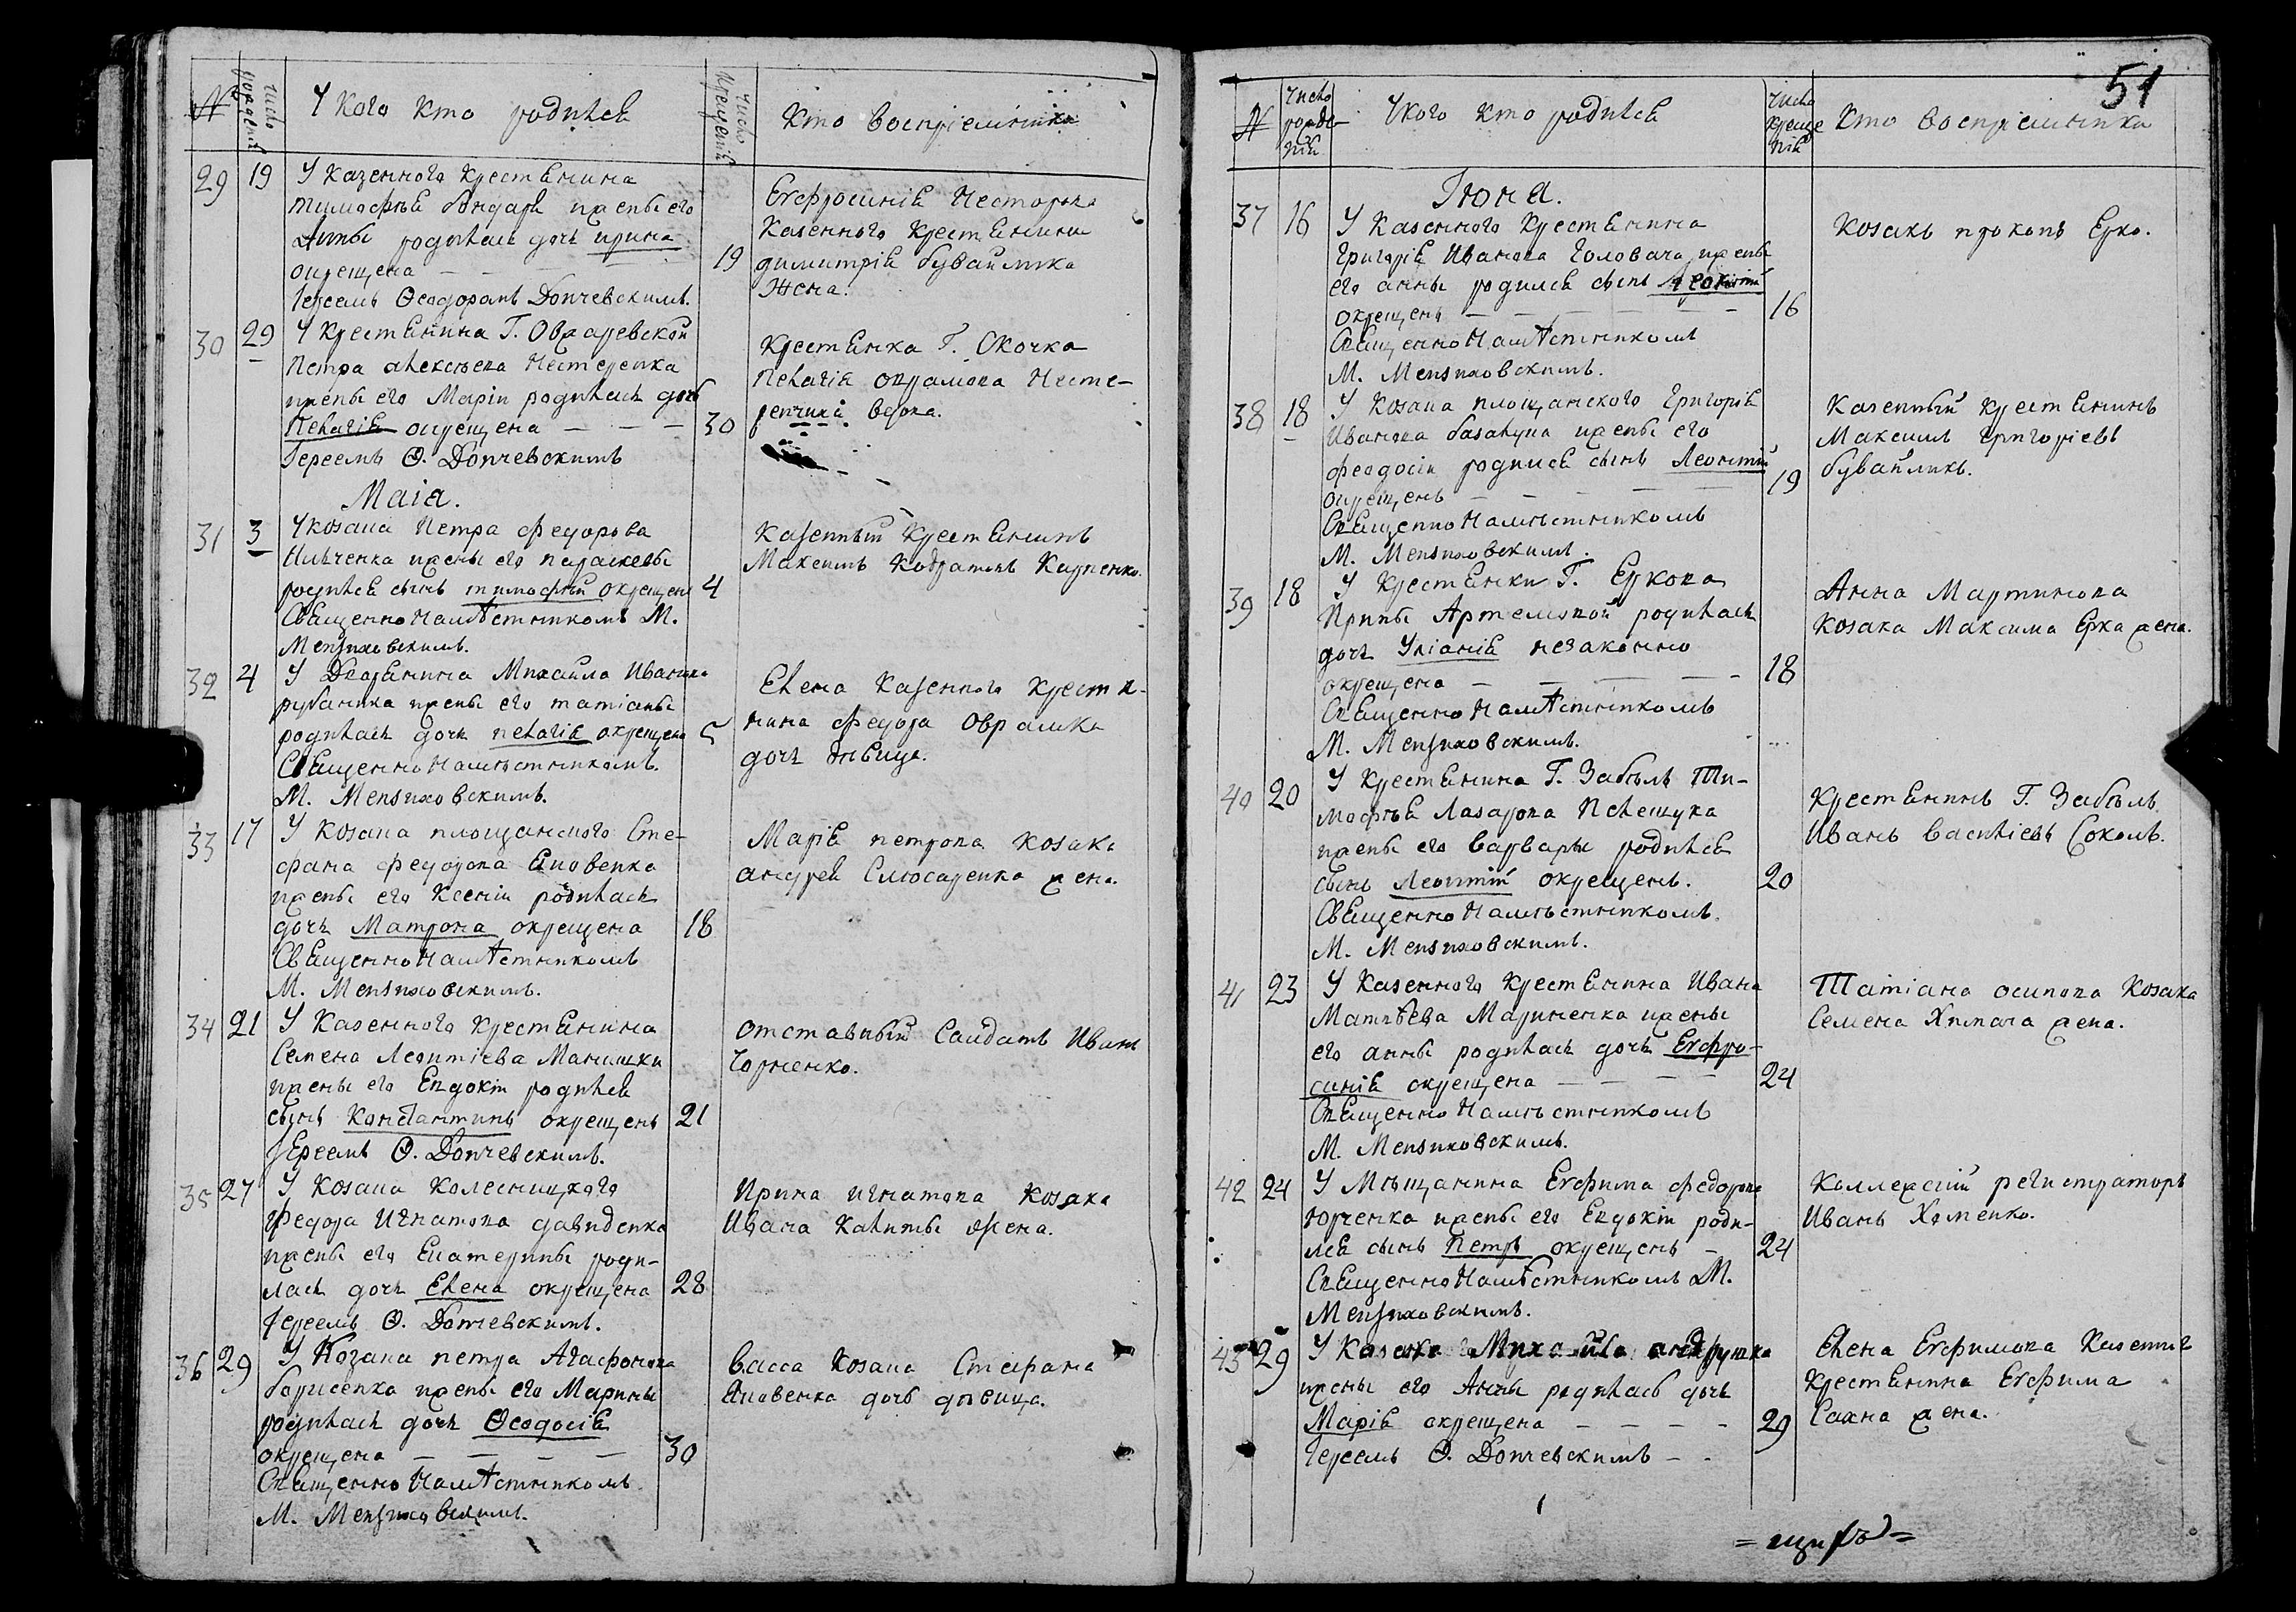 №
число рожденій
У кого кто родился
число крещенія
кто воспріемники
29
19
У казенного крестянина
тимофѣя бондаря жены его
Анны родилась дочь ирина
окрещена
19
Іереемъ Ѳеодоромъ Допчевскимъ.
Евфросинія Несторова
казенного крестянина
димитрія бувайлика
Жена.
30
29
У крестянина Г.
Петра алексѣева Нестеренка
жены его Маріи родилась дочь
Пелагія окрещена
30
Іереемъ Ѳ. Допчевскимъ
крестянка Г. Скочка
Пелагія Несте-
Маіа.
31
3
У козака Петра федорова
Ильченка жены его параскевы
родился сынъ тимофей окрещенъ
4
Священно Намѣстникомъ М.
Мензиховскимъ.
казенный крестянинъ
Максимъ Кодратовъ Карпенко.
32
4
У Дворянина Михаила Иванова
рубаника жены его татіаны
родилась дочь пелагія окрещена
5
Священно Намѣстникомъ.
М. Мензиховскимъ.
Елена казенного крестя-
нина федора Оврамка
дочь дѣвица.
33
17
У козака площанского Сте-
фана федорова Яковенка
жены его Ксеніи родилась
дочь Матрона окрещена
18
Священно Намѣстникомъ
М. Мензиховскимъ.
Марія петрова козака
андрея Слюсаренка жена.
34
21
У казенного крестянина
Семена Леонтіева Манишки
жены его Евдокіи родился
сынъ Константинъ окрещенъ
21
Іереемъ Ѳ. Допчевскимъ.
отставный Салдатъ Иванъ
Чорненко.
35
27
У козака Колесницкого
федора Игнатова давиденка
жены его Екатерины роди-
лась дочь Елена окрещена
28
Іереемъ Ѳ. Допчевскимъ.
Ирина игнатова козака
Ивана Калиты жена.
36
29
У Козака петра Агафонова
борисенка жены его Марины
родилась дочь Ѳеодосія
окрещена
30
Священно Намѣстникомъ
М. Мензиховскимъ.
васса козака Стефана
Яковенка дочь дѣвица.
51
№
число рожде-
ній
У кого кто родился
число креще
нія
кто воспріемники
Іюня.
37
16
У казенного крестянина
Григорія Иванова Головача жены
его анны родился сынъ Леонтій
окрещенъ
16
Священно Намѣстникомъ
М. Мензиховскимъ.
козакъ прокопъ Ерко.
38
18
У козака площанского Григорія
Иванова базалука жены его
феодосіи родился сынъ Леонтій
окрещенъ
19
Священно Намѣстникомъ
М. Мензиховскимъ.
казенный крестянинъ
Максимъ григоріевъ
бувайликъ.
39
18
У крестянки Г. Еркова
Ирины Артемовой родилась
дочь Уліанія незаконно
окрещена
18
Священно Намѣстникомъ
М. Мензиховскимъ.
Анна Мартинова
козака Максима Ерка жена.
40
20
У крестянина Г. Забѣлъ Ти-
мофѣя Лазарова Пелешука
жены его варвары родился
сынъ Леонтій окрещенъ.
20
Священно Намѣстникомъ.
М. Мензиховскимъ.
крестянинъ Г. Забѣлъ
Иванъ василіевъ Соколъ.
41
23
У казенного крестянина Ивана
Матвѣева Мариненка жены
его анны родилась дочь Евфро-
синія окрещена
24
Священно Намѣстникомъ
М. Мензиховскимъ.
Татіана осипова козака
Семена Химача жена.
42
24
У Мѣщанина Евфима федорова
Юрченка жены его Евдокіи роди-
лся сынъ Петръ окрещенъ
24
Священно Намѣстникомъ М.
Мензиховскимъ.
коллежскій регистраторъ
Иванъ Хоменко.
43
29
У козака Михайла андрушка
жены его Анны родилась дочь
Марія окрещена
29
Іереемъ Ѳ. Допчевскимъ
Елена Евфимова казенного
крестянина Евфима
Сахна жена.